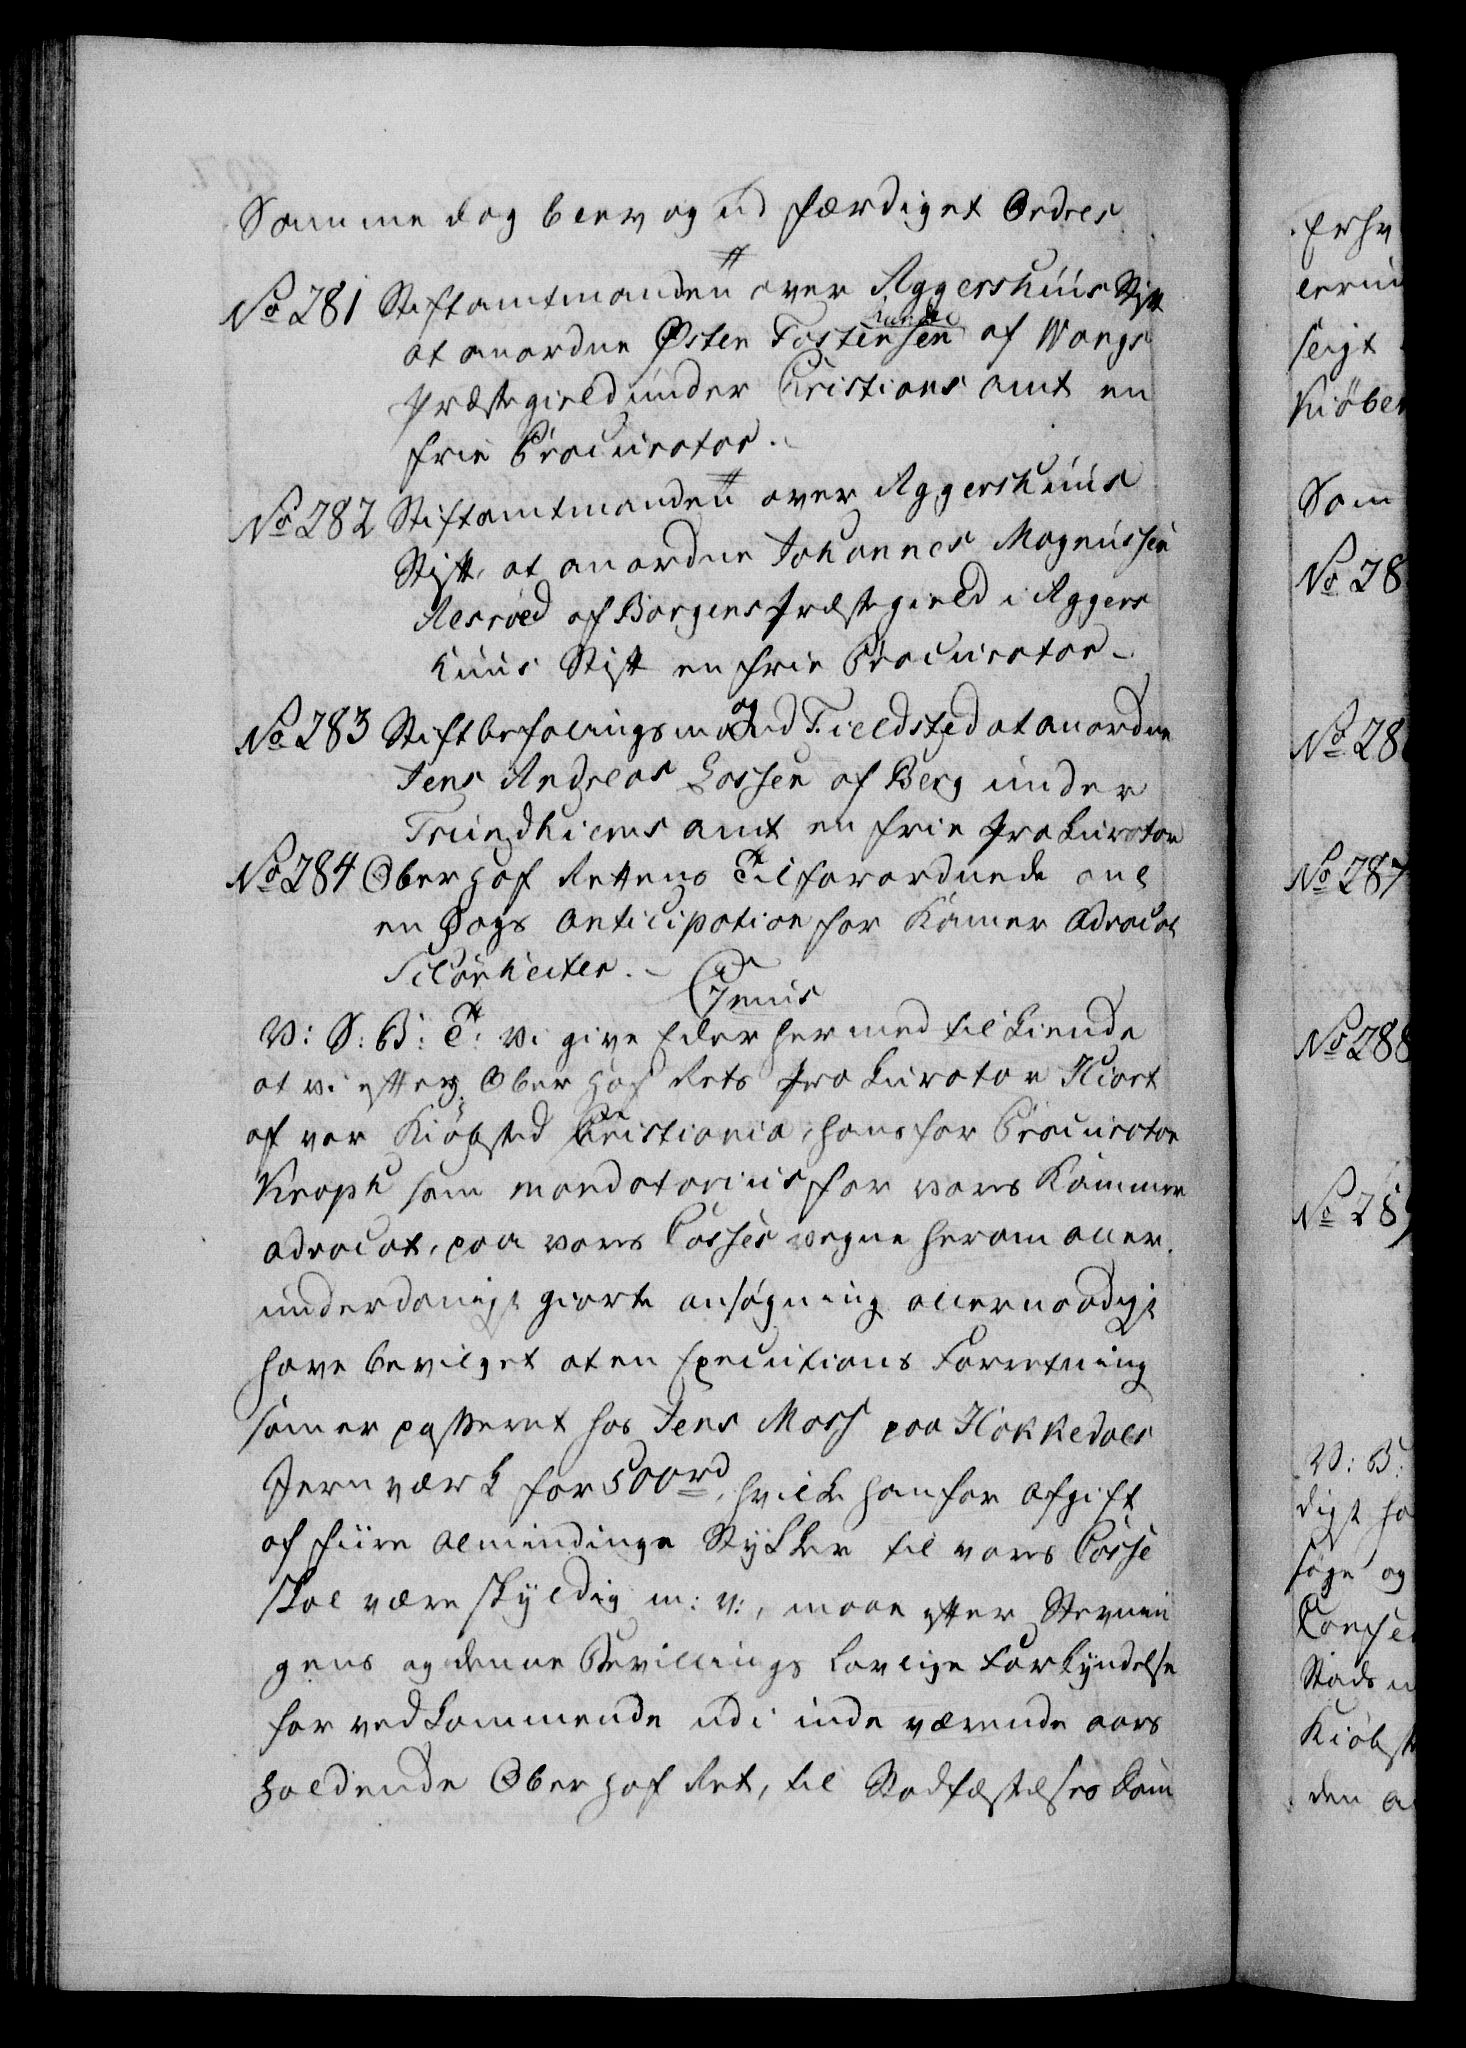 Samme dag blev og udfærdiget Ordres
No 281 Stiftamtmanden over Aggershuus Stift
at anordne Østen Tostensen Kunde af Wangs
Præstegield under Christians amt en
frie Procurator.
No 282 Stiftamtmanden over Aggershuus
Stift, at anordne Johannes Magnussen
Alsrøed af Borgens Præstegield i Aggers
huus Stift en frie Procurator.
No 283 Stiftbefalingsmand Fieldsted at anordne
Jens Andreas Lossen af Berg under
Trundhiems amt en frie Prokurator
No 284 Ober Hof Rettens Tilforordnede anl
en Dags Anticipation for Kamer Advocat
Schønheiter.
Genius
V: S: B: T: Vi give Eder hermed tilkiende
at vi efter Ober Hof Rets Prokurator Hiort
af vor Kiøbsted Christiania, hans for Procurator
Kraph som mandatarius for vores Kammer
advocat, paa vores Casses vegne herom aller
underdanigst giorte ansøgning allernaadigst
have bevilget at en Executions Forretning
som er passeret hos Jens Moss paa Hakkedals
Jernværk for 500 rd, hvilke han for Afgift
af fiire almindinge Stykker til vores Casse
skal være skyldig m: v:, maae efter Stevnin
gens og denne Bevillings lovlige Forkyndelse
for vedkommende udi inde værende aars
holdende Ober Hof Ret, til Stadfæstelses Dom
erhv
seigt
Kiøben
Som
No 28
No 28
No 287
No 288
No 289
V: B:
digst ha
søge og
Stads
Kiøbst
den a